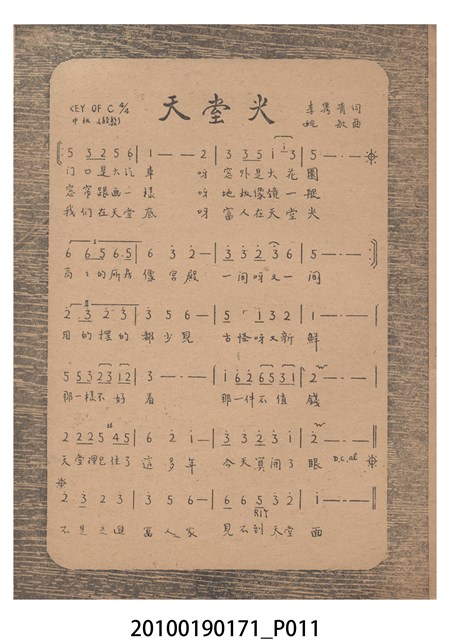 天堂火
KEY OF C 4/4
李雋青 詞
姚敏 曲
5 3 2 5 6 | 1 — — 2 | 3 3 5 i 3 | 5 — · —
門口是大汽車 呀 窗外是大花園
窗帘跟画一樣 呀 地板像鏡一
我們在天堂底 呀 富人在天堂
6 6 5 6·5 | 6 3 · 2 — | 3 3 2 3 6 | 5 — · —
高高的所在像宮殿 一間呀又一間
2 · 3 2 · 3 | · 3 5 6 — | 5 · 1 3 2 | 1 — · —
用的擺的都少見 古怪呀又新鮮
5 5 3 2 3 1 2 | 3 — · — | 1 6 2 6 5 3 1 | 2 — · —
那一樣不好看 那一件不值錢
2 2 2 5 4 5 | 6 2 1 — | 3 3 2 3 1 | 2 — · —
天堂裡已住了這多年 今天算開了眼 D.C. al
2 · 3 2 3 | · 3 5 6 — | 6 6 5 3 2 | 1 — · —
RIT
不是之進富人家 見不到天堂面
20100190171_P011